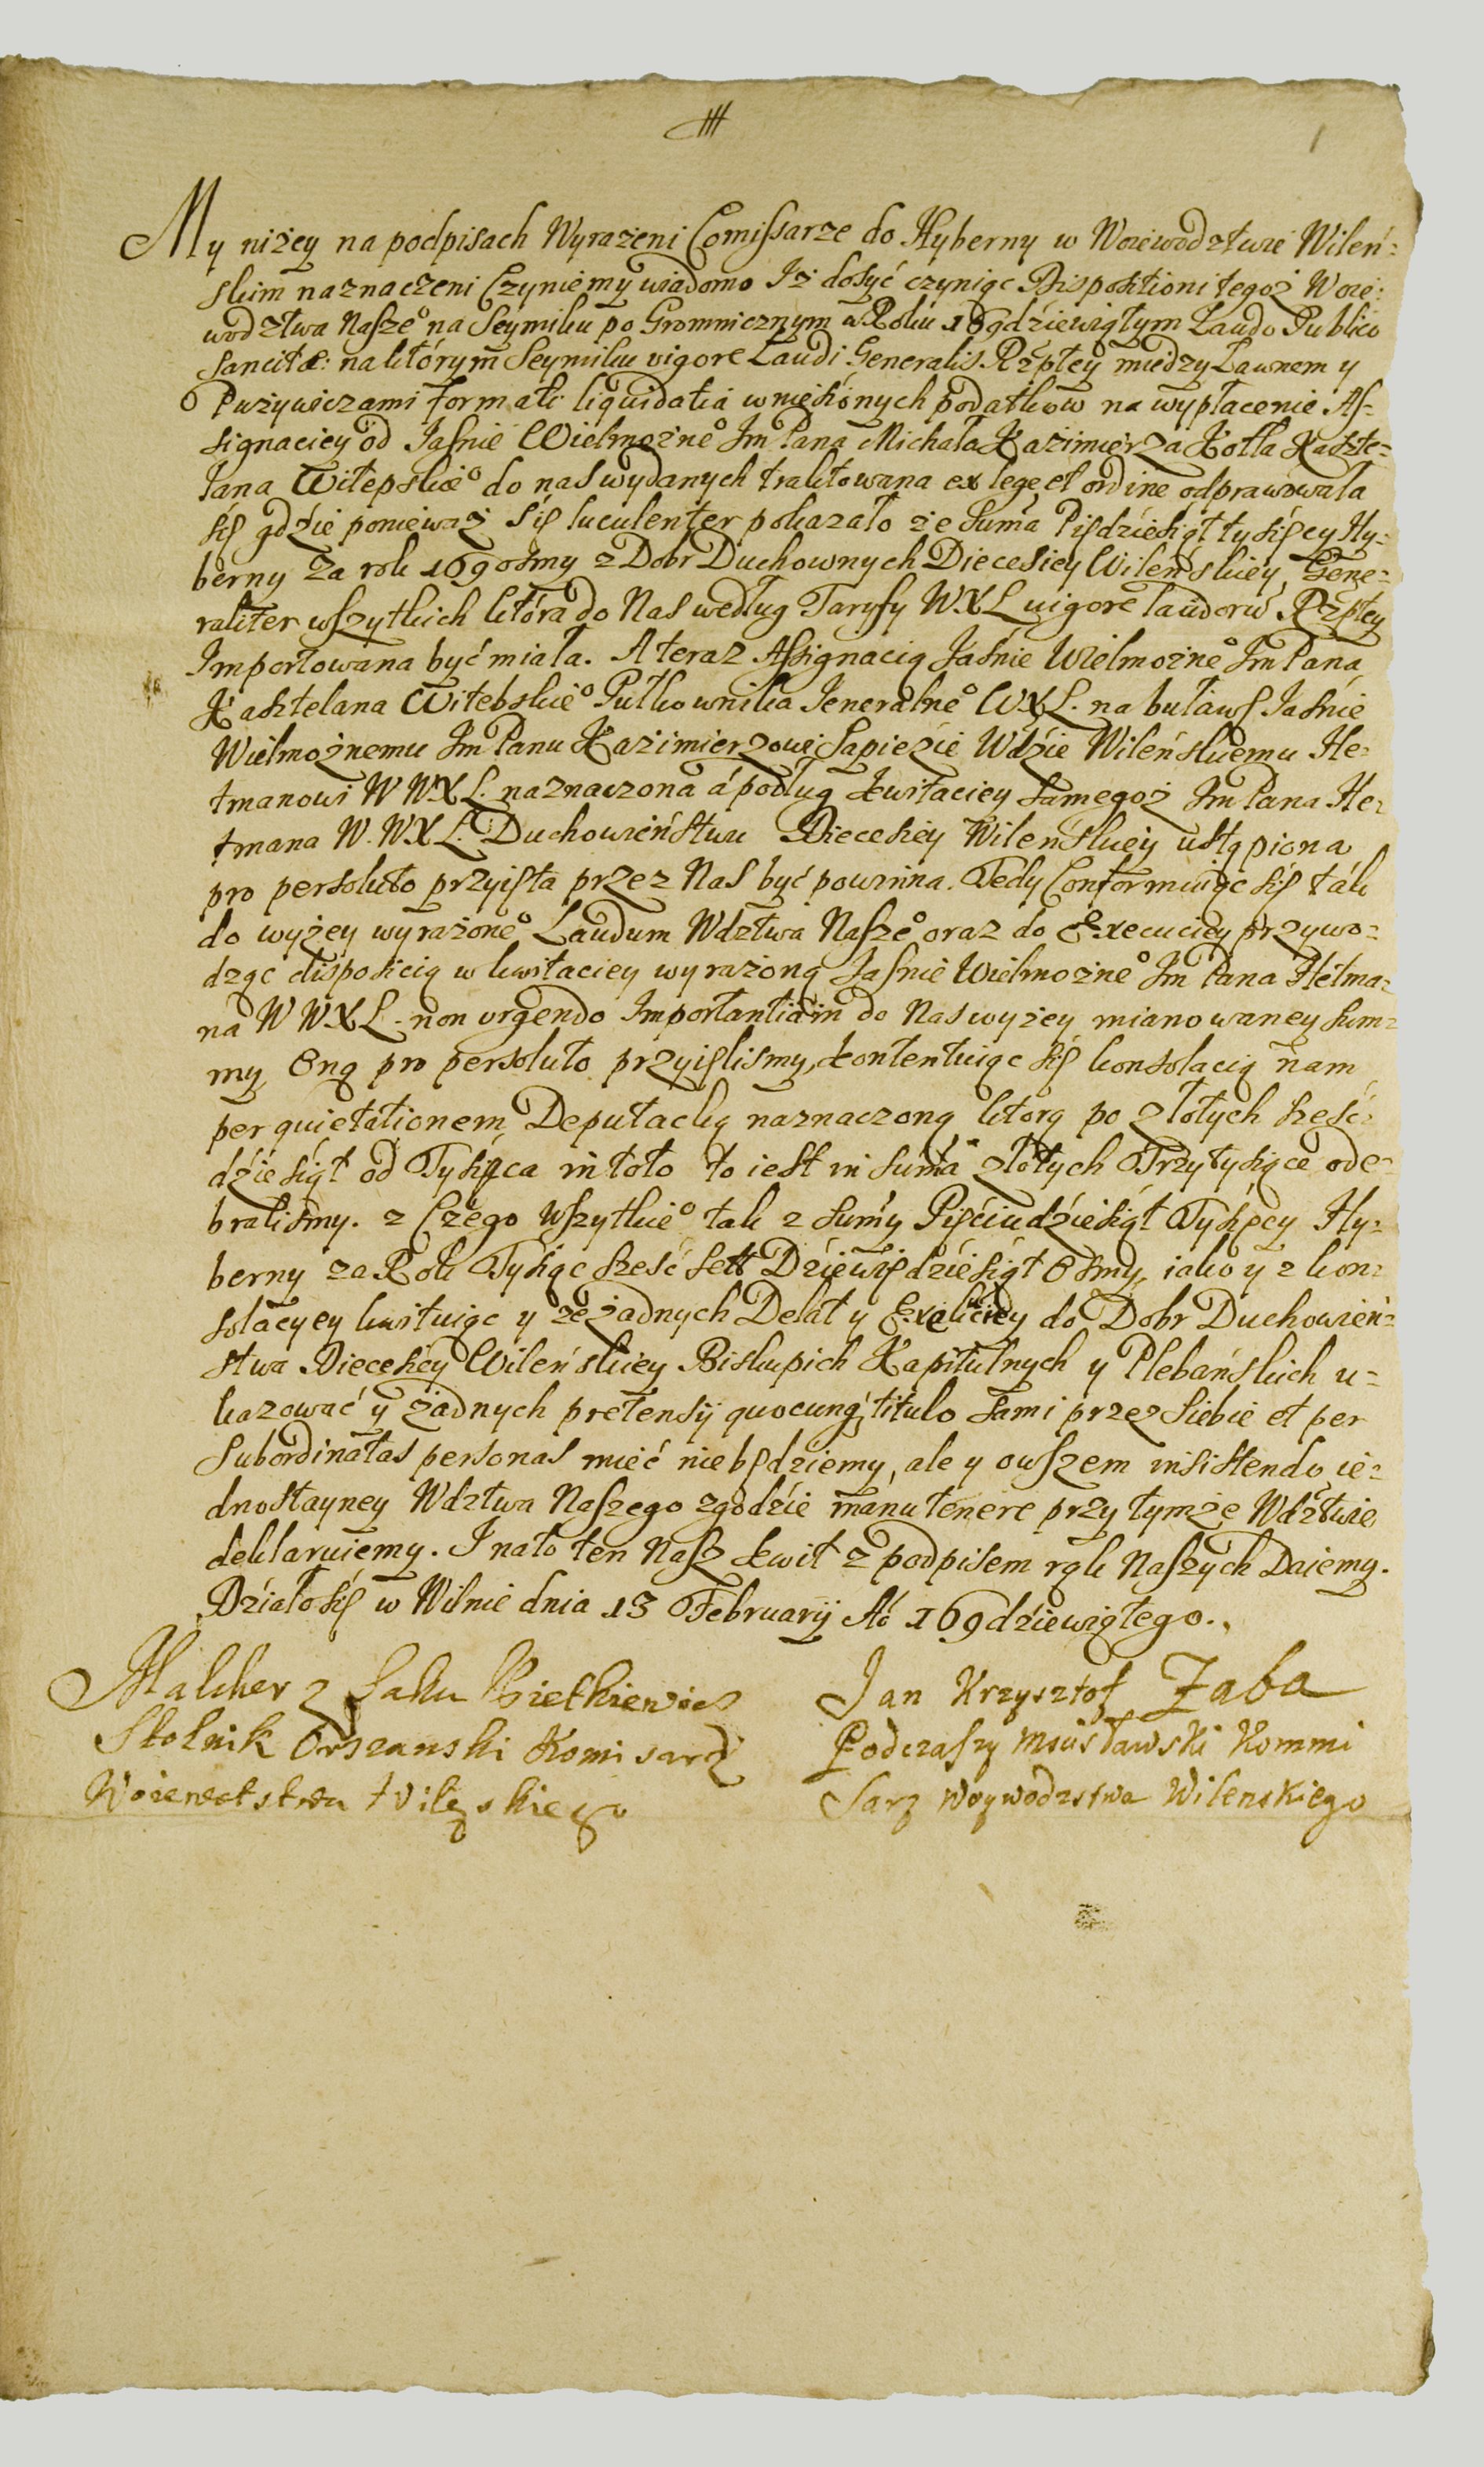 My niżey na podpisach Wyrażeni Comissarze do Hyberny w Woiewodztwie Wileń:
skim naznaczeni Czyniemy wiadomo Iż dosyć czyniąc Dispositioni tegoż Woie:
wodztwa Nasze° na Seymiku po Gromnicznym w Roku 169dziewiątym Laudo Publico
sancitæ: na którym Seymiku vigore Laudi Generalis Rzptey miedzy Ławnem y
Pużywiczami formali liquidatia wniesionych podatkow na wypłacenie As=
signaciey od Jasnie Wielmożne° Jm Pana Michała Kazimierza Kotła Kaszte=
lana Witepskie° do nas wydanych traktowana ex lege et ordine odprawowała
się gdzie ponieważ się luculenter pokazało że Suma Piędziesiąt tysięcy Hy=
berny za rok 169osmy z Dobr Duchownych Diecesiey Wileńskiey, Gene=
raliter wszytkich która do Nas według Taryfy W.X.L. vigore laudorū Rzptey
Importowana być miała. A teraz Assignacią Jaśnie Wielmożne° Jm Pana
Kasztelana Witebskie° Pułkownika Jeneralne° W.X.L. na buławę Jaśnie
Wielmożnemu Jm Panu Kazimierzowi Sapiezie Wdzie Wileńskiemu He=
tmanowi W W.X.L. naznaczona á podług kwitaciey samegoż Jm Pana He=
tmana W. W.X.L. Duchowieństwu Diecesiey Wileńskiey ustąpiona
pro persoluto przyięta przez Nas być powinna. Tedy Conformuiąc się ták
do wyżey wyrażone° Laudum Wdztwa Nasze° oraz do Execuciey przywo=
dząc disposicią w kwitaciey wyrażoną Jasnie Wielmożne° Jm Pana Hetma=
na W W.X.L. non urgendo Importantiam do Nas wyżey mianowaney sum=
my, Oną pro persoluto przyięlismy, kontentuiąc się konsolacią nam
per quietationem Deputacką naznaczoną którą po złotych sześć=
dziesiąt od Tysiąca in toto to iest in suma złotych Trzytysiące ode=
bralismy. z Czego wszytkie° tak z sumy Pięciudziesiąt Tysięcy Hy=
berny za Rok Tysiąc sześć sett Dziewiędziesiąt Osmy, iako y z kon=
solacyey kwituiąc y że żadnych Delat y Exakciey do Dobr Duchowień=
stwa Diecesiey Wileńskiey Biskupich Kapitulnych y Plebańskich u=
kazować y żadnych pretensij quocunq; titulo sami przez siebie et per
Subordinatas personas mieć niebędziemy, ale y owszem insistendo ie=
dnostayney Wdztwa Naszego zgodzie manutenere przy tymże Wdztwie
deklaruiemy. I nato ten Nasz kwit z podpisem rąk Naszych Daiemy.
Działo się w Wilnie dnia 13 Februarij A° 169dziewiątego.
Malcher z Bietkiewicz
Stolnik Orszanski Komisarz
Jan Krzysztof Zaba
Podczaszy Mscisławski Kommi
Sarz Woywodzstwa Wilenskiego